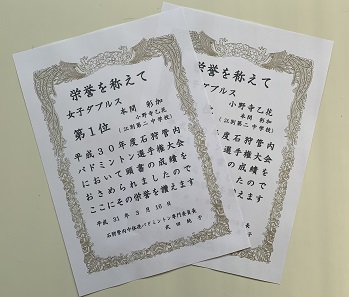 栄誉を称えて
女子ダブルス
本間 彩加
小野寺乙花
第1位
(江別第二中学校)
平成30年度石狩管内
バドミントン選手権大会
において頭書の成績を
おさめられましたので
ここにその栄誉を讃えます
平成 31年 3月 16日
石狩管内中体連バドミントン専門委員長
武田 純子
栄誉を称えて
ダブルス
小野寺乙花
本間 彩加
(江別第二中学校)
年度石狩管内
ン選手権大会
書の成績を
ましたので
誉を讃えます
長
子